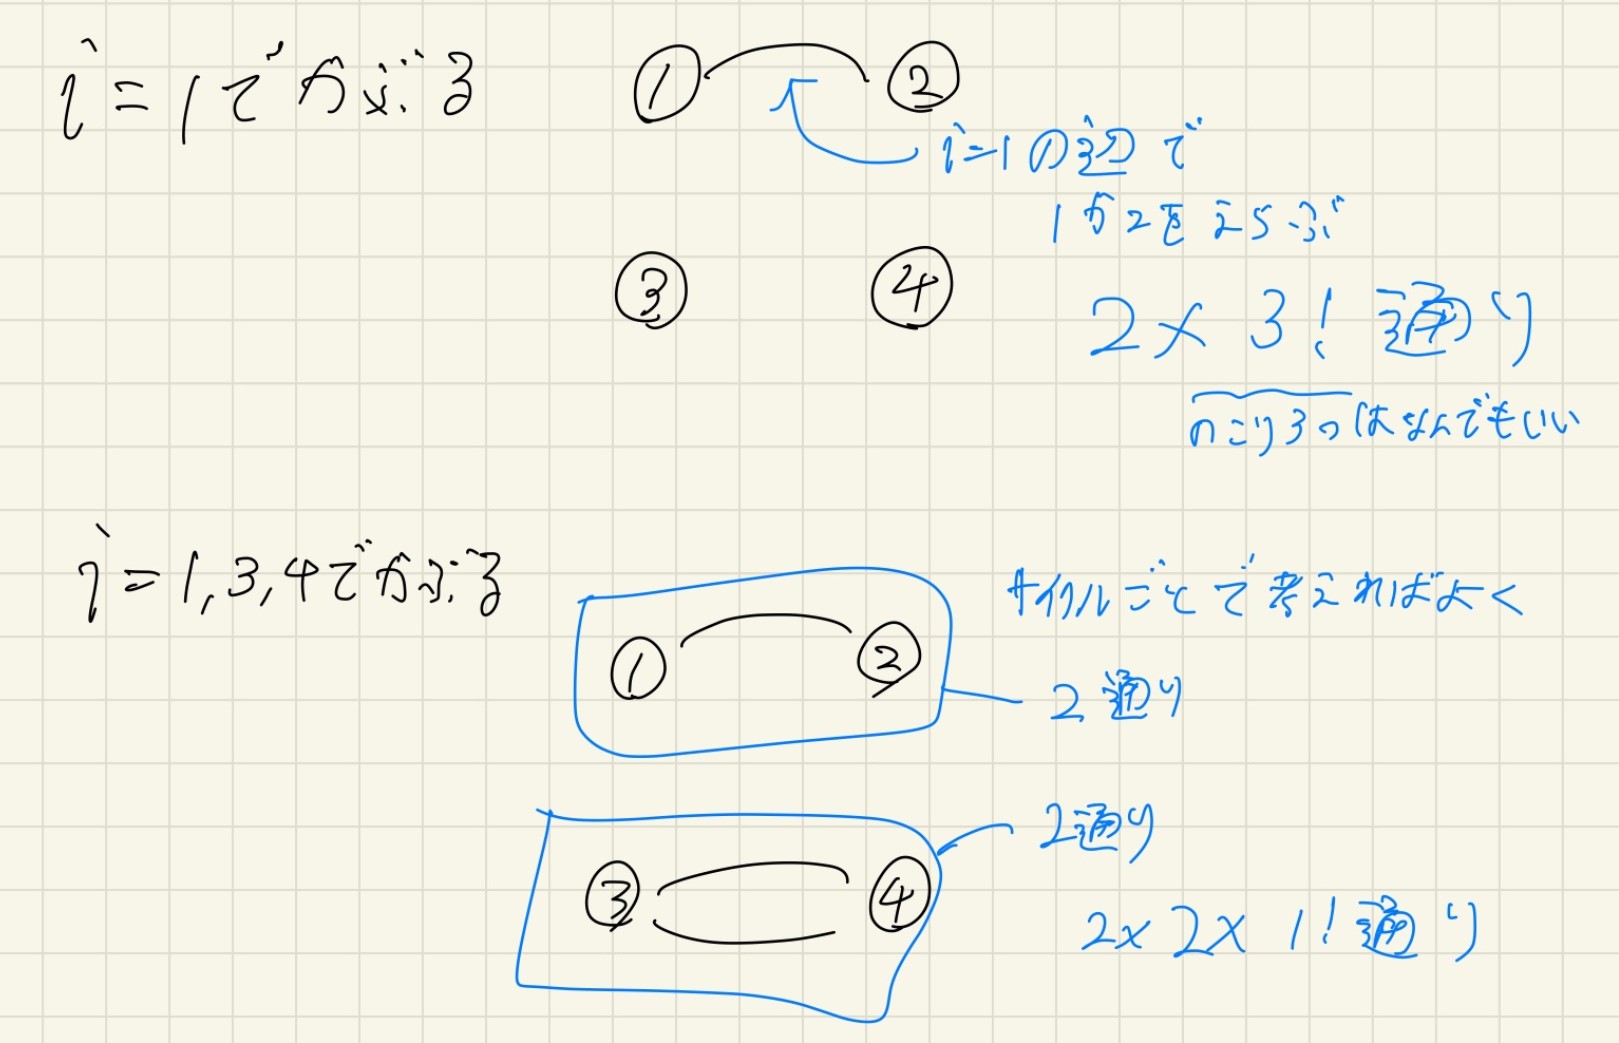 i=1でかぶる
① ②
i=1の辺で
1か2をえらぶ
③ ④
2×3!通り
のこり3つはなんでもいい
i=1,3,4でかぶる
サイクルごとで考えればよく
① ②
2通り
2通り
③ ④
2×2×1!通り